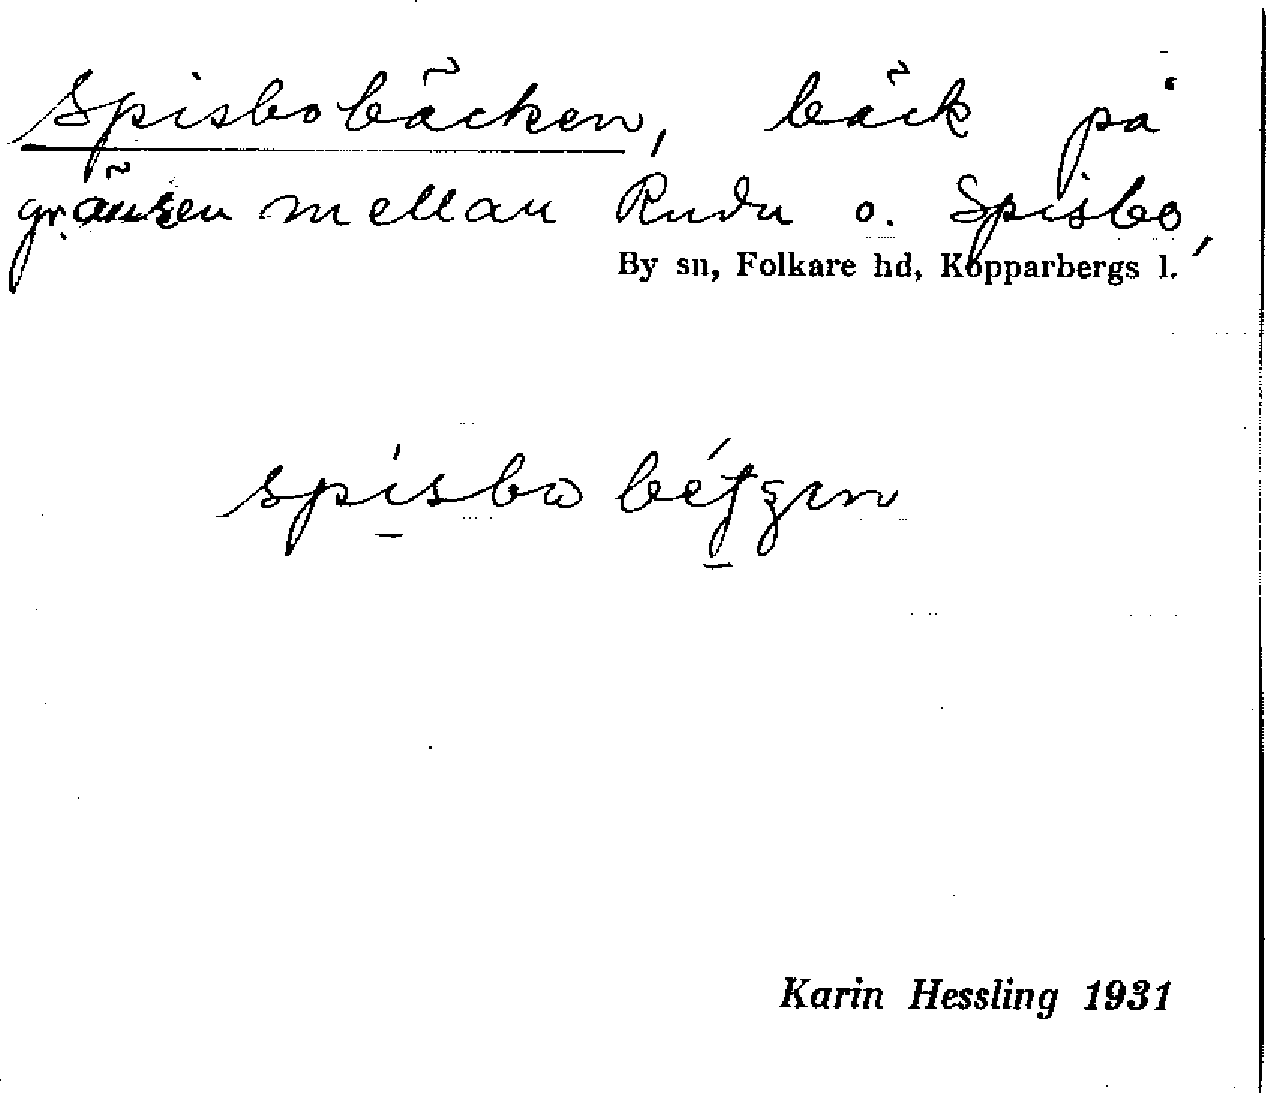 Spisbobäcken, bäck på
gränsen mellan Rudu o. Spisbo,
By sn, Folkare hd, Kopparbergs l.
Karin Hessling 1931